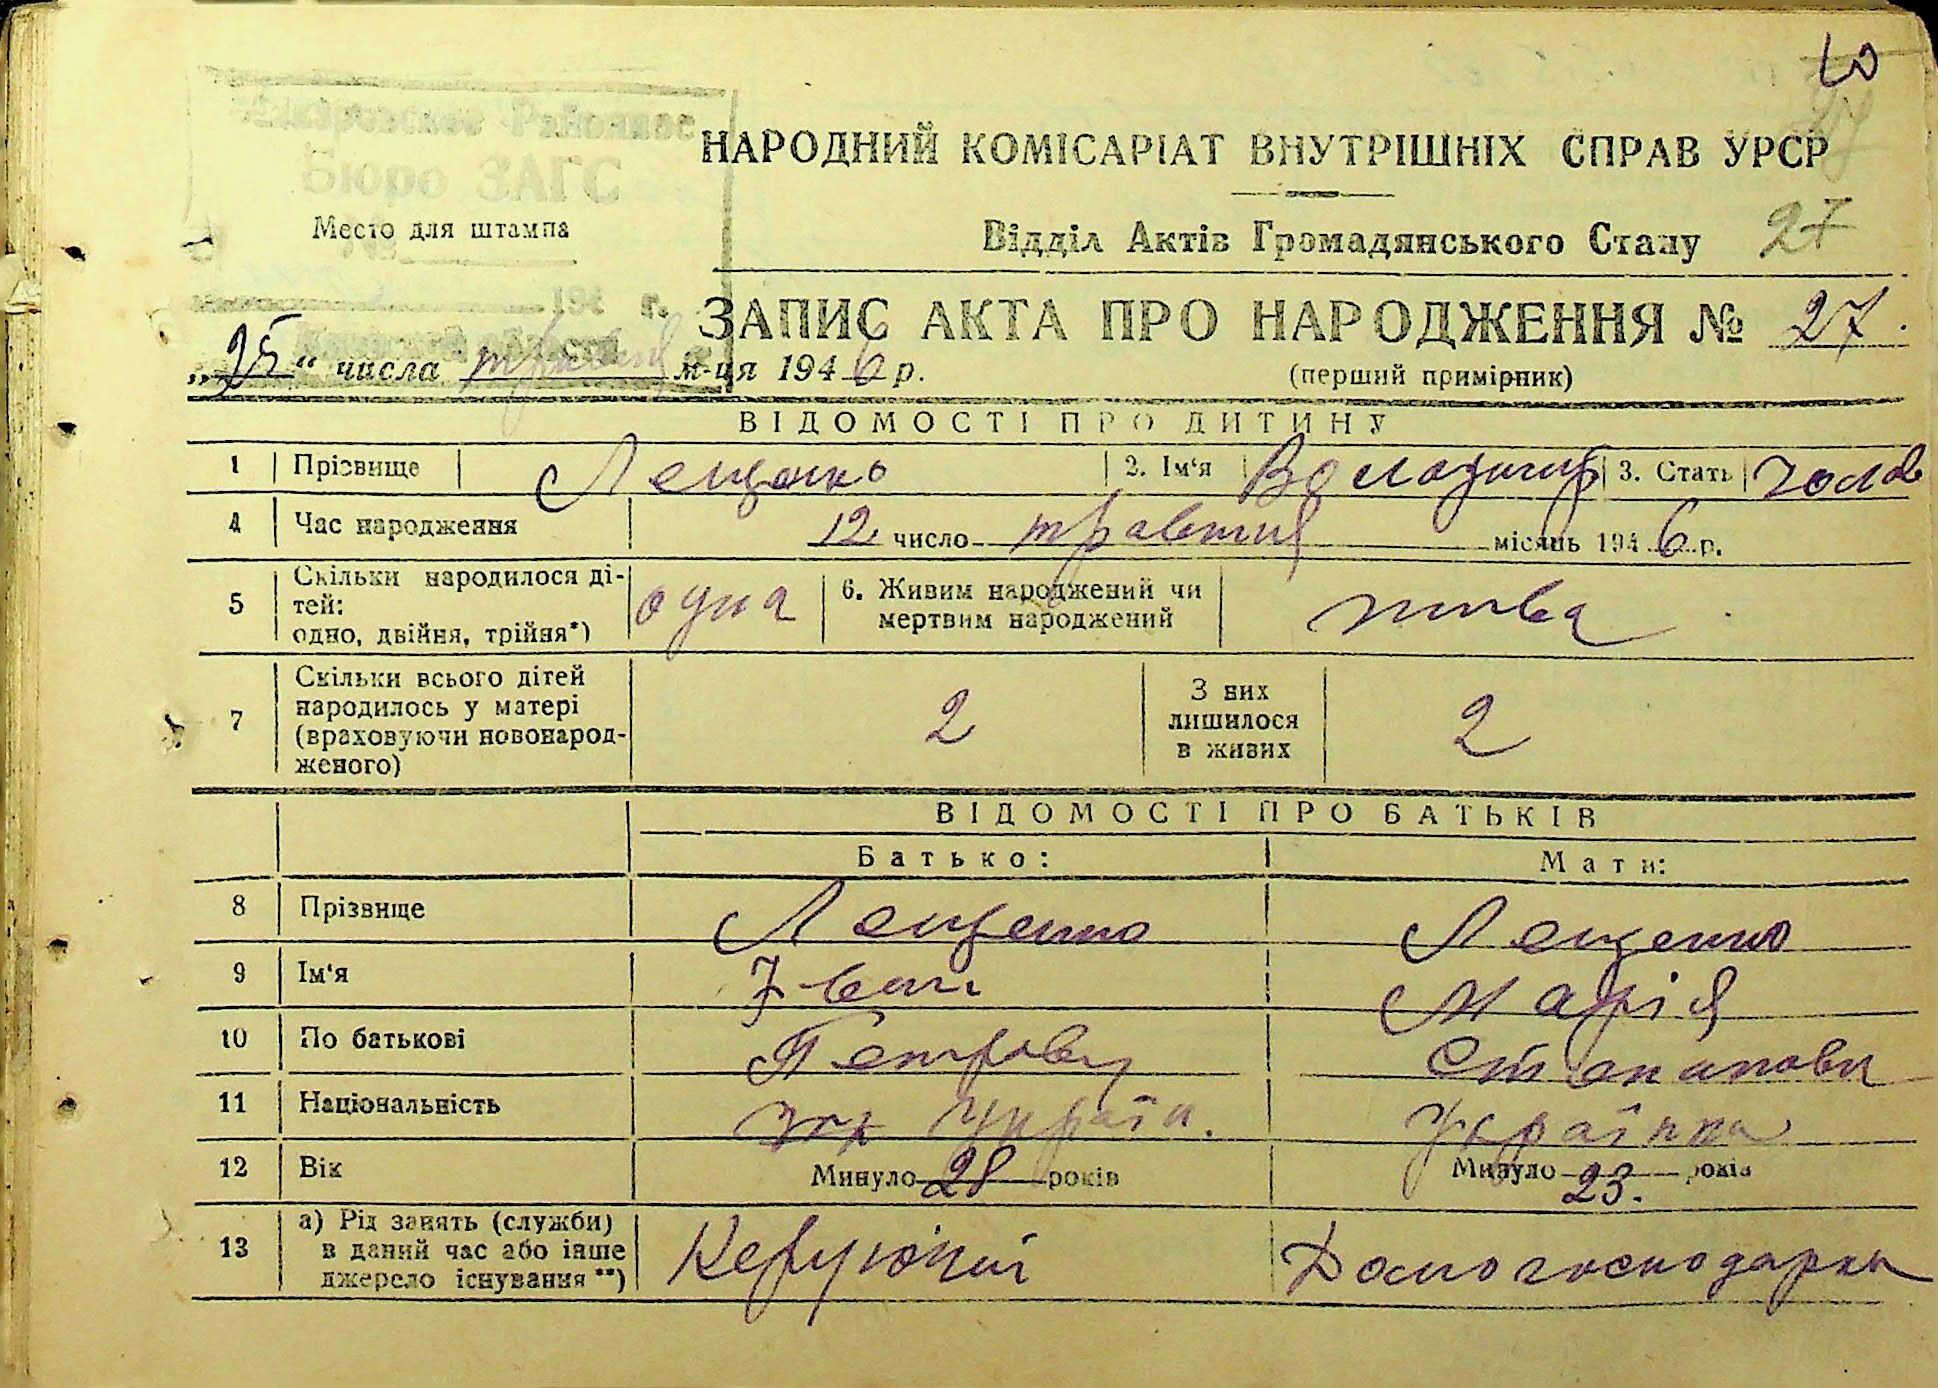 10
НАРОДНИЙ КОМІСАРІАТ ВНУТРІШНІХ СПРАВ УРСР
Районное
Бюро ЗАГС
Место для штампа
Відділ Актів Громадянського Стану 27
194 г.
ЗАПИС АКТА ПРО НАРОДЖЕННЯ № 27.
„25“ числа травня м-ця 1946 р.
(перший примірник)
ВІДОМОСТІ ПРО ДИТИНУ
1 Прізвище Лещенко 2. Ім‘я Володимир 3. Стать чолов
4 Час народження 12 число травня місяць 1946 р.
5 Скільки народилося ді-
тей:
одно, двійня, трійня*) одна 6. Живим народжений чи
мертвим народжений жива
7 Скільки всього дітей
народилось у матері
(враховуючи новонарод-
женого) 2 З них
лишилося
в живих 2
ВІДОМОСТІ ПРО БАТЬКІВ
Батько: Мати:
8 Прізвище Лещенко Лещенко
9 Ім‘я Іван Марія
10 По батькові Петрович Степанови
11 Національність укр Україн. Українка
12 Вік Минуло 28 років Минуло 23. років
13 а) Рід занять (служби)
в даний час або інше
джерело існування **) Керуючий Домогосподарка